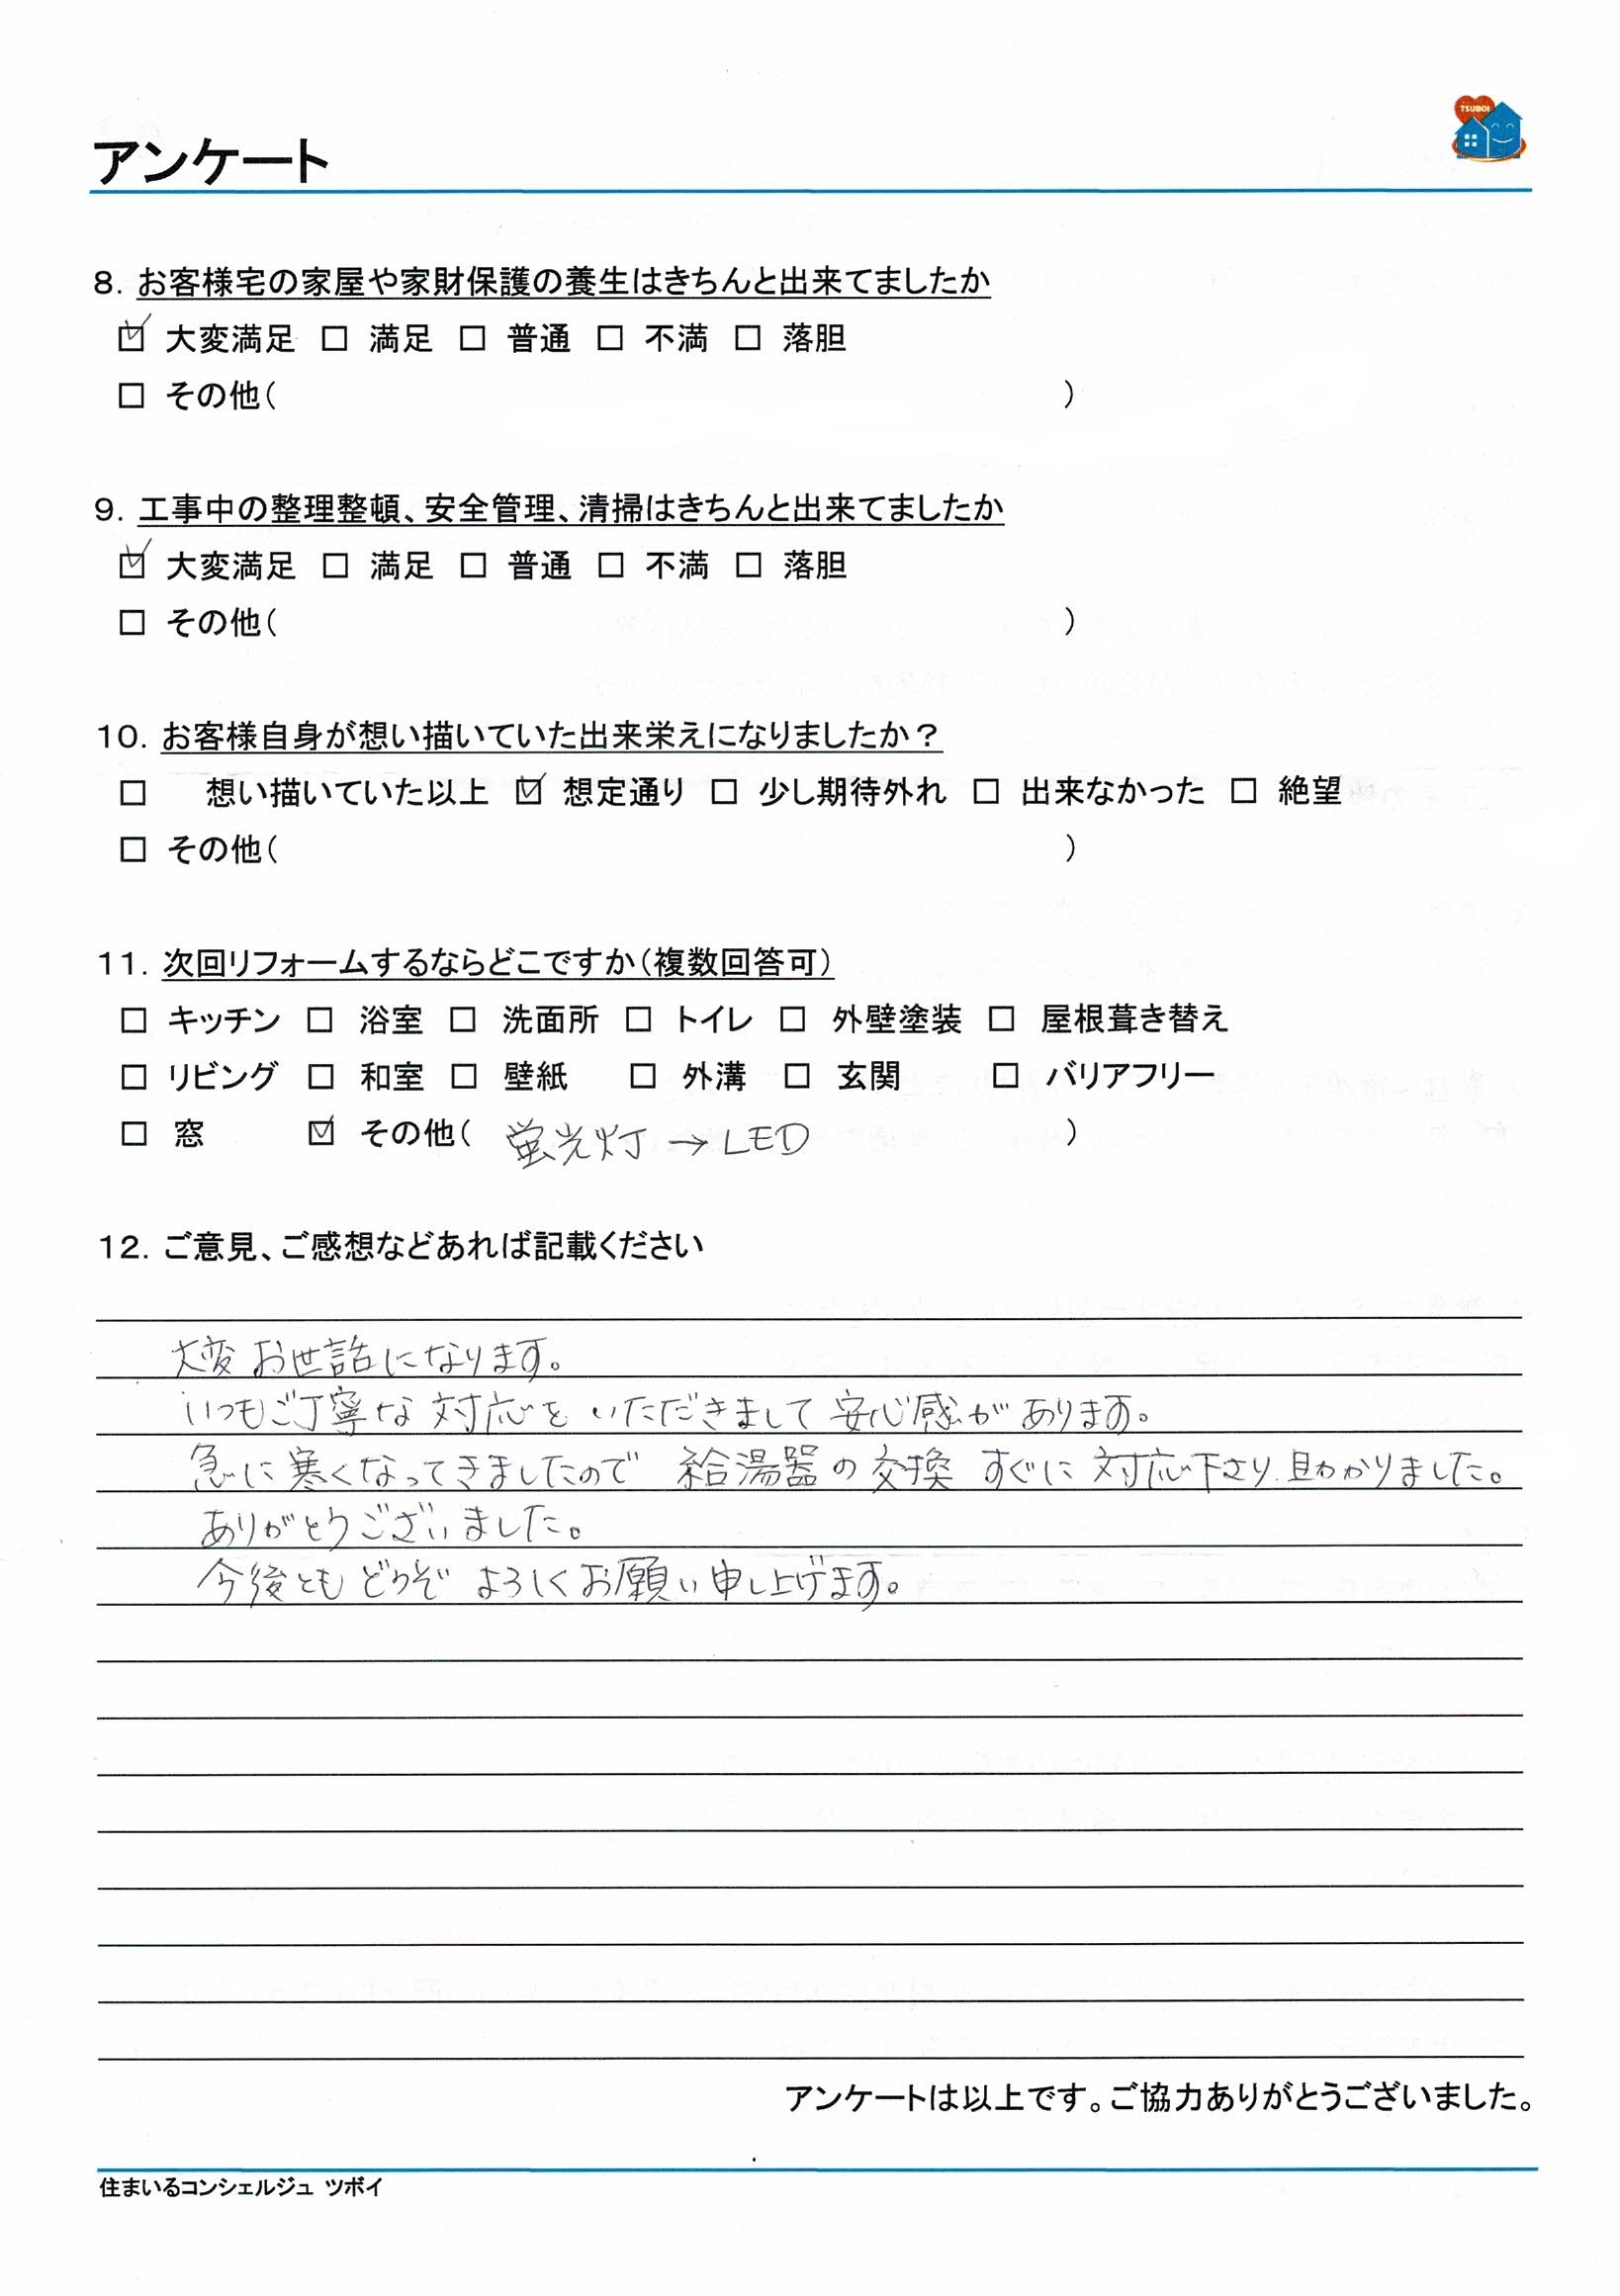 TSUBOI
アンケート
8. お客様宅の家屋や家財保護の養生はきちんと出来てましたか
☑ 大変満足 □ 満足 □ 普通 □ 不満 □ 落胆
□ その他( )
9. 工事中の整理整頓、安全管理、清掃はきちんと出来てましたか
☑ 大変満足 □ 満足 □ 普通 □ 不満 □ 落胆
□ その他( )
10. お客様自身が想い描いていた出来栄えになりましたか？
□ 想い描いていた以上 ☑ 想定通り □ 少し期待外れ □ 出来なかった □ 絶望
□ その他( )
11. 次回リフォームするならどこですか(複数回答可)
□ キッチン □ 浴室 □ 洗面所 □ トイレ □ 外壁塗装 □ 屋根葺き替え
□ リビング □ 和室 □ 壁紙 □ 外溝 □ 玄関 □ バリアフリー
□ 窓 ☑ その他( 蛍光灯→LED )
12. ご意見、ご感想などあれば記載ください
大変お世話になります。
いつもご丁寧な対応をいただきまして安心感があります。
急に寒くなってきましたので 給湯器の交換 すぐに対応下さり、助かりました。
ありがとうございました。
今後ともどうぞよろしくお願い申し上げます。
アンケートは以上です。ご協力ありがとうございました。
住まいるコンシェルジュ ツボイ